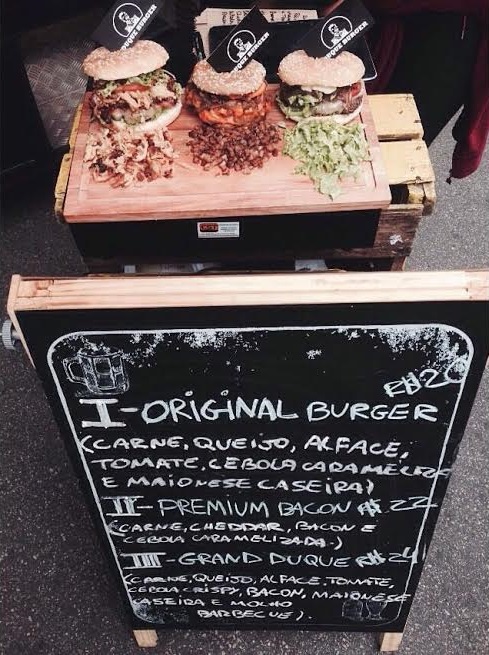 DUQUE BURGER
DUQUE BURGER
DUQUE BURGER
R$20
I-ORIGINAL BURGER
(CARNE, QUEIJO, ALFACE,
TOMATE, CEBOLA CARAMELIZADA
E MAIONESE CASEIRA)
II-PREMIUM BACON R$ 22
(CARNE, CHEDDAR, BACON E
CEBOLA CARAMELIZADA.)
III-GRAND DUQUE R$24
(CARNE, QUEIJO, ALFACE, TOMATE,
CEBOLA CRISPY, BACON, MAIONESE
CASEIRA E MOLHO
BARBECUE).